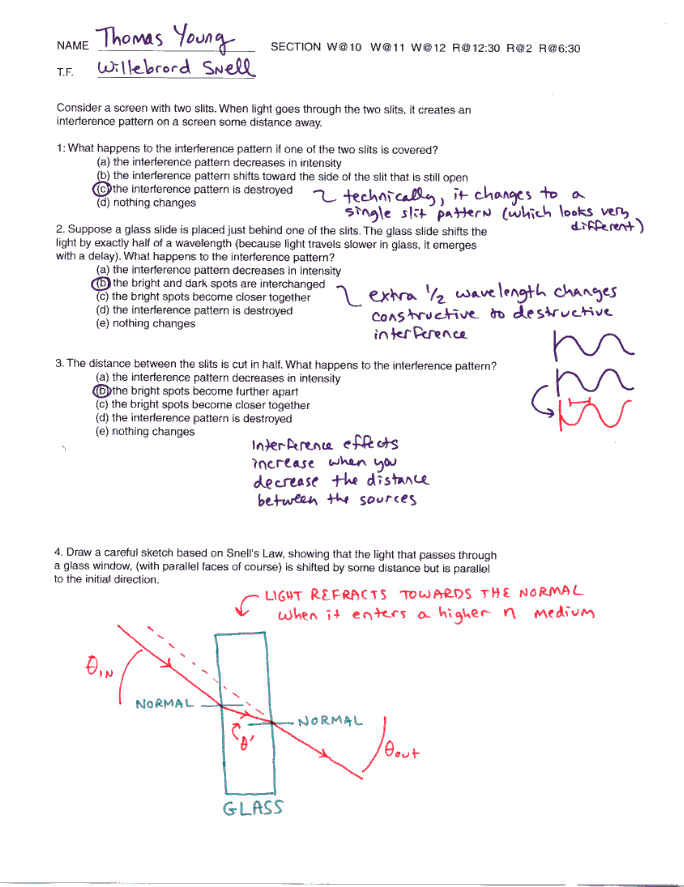 NAME Thomas Young SECTION W@10 W@11 W@12 R@12:30 R@2 R@6:30
T.F. Willebrord Snell
Consider a screen with two slits. When light goes through the two slits, it creates an
interference pattern on a screen some distance away.
1: What happens to the interference pattern if one of the two slits is covered?
(a) the interference pattern decreases in intensity
(b) the interference pattern shifts toward the side of the slit that is still open
(c) the interference pattern is destroyed
(d) nothing changes
technically, it changes to a
single slit pattern (which looks very
different)
2. Suppose a glass slide is placed just behind one of the slits. The glass slide shifts the
light by exactly half of a wavelength (because light travels slower in glass, it emerges
with a delay). What happens to the interference pattern?
(a) the interference pattern decreases in intensity
(b) the bright and dark spots are interchanged
(c) the bright spots become closer together
(d) the interference pattern is destroyed
(e) nothing changes
extra 1/2 wavelength changes
constructive to destructive
interference
3. The distance between the slits is cut in half. What happens to the interference pattern?
(a) the interference pattern decreases in intensity
(b) the bright spots become further apart
(c) the bright spots become closer together
(d) the interference pattern is destroyed
(e) nothing changes
Interference effects
increase when you
decrease the distance
between the sources
4. Draw a careful sketch based on Snell's Law, showing that the light that passes through
a glass window, (with parallel faces of course) is shifted by some distance but is parallel
to the initial direction.
LIGHT REFRACTS TOWARDS THE NORMAL
when it enters a higher n medium
θIN
NORMAL
NORMAL
θ'
θout
GLASS